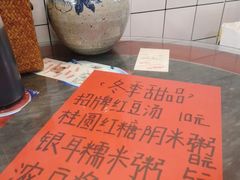 ·冬季甜品·
招牌红豆汤 10元
桂圆红糖阴米粥
银耳糯米粥